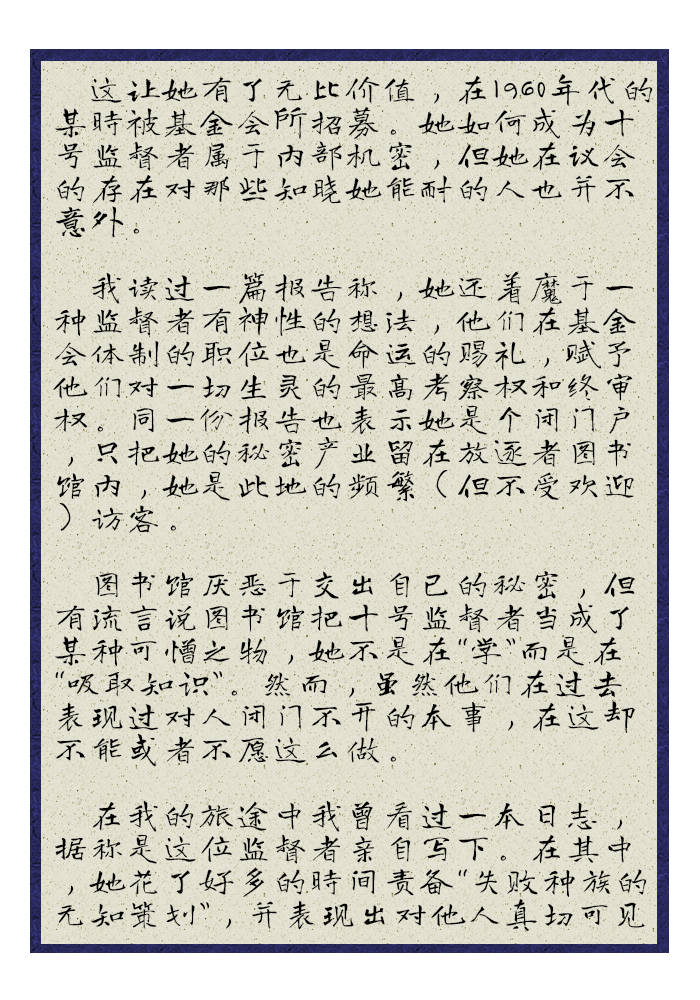 这让她有了无比价值，在1960年代的
某時被基金会所招募。她如何成为十
号监督者属于内部机密，但她在议会
的存在对那些知晓她能耐的人也并不
意外。
我读过一篇报告称，她还着魔于一
种监督者有神性的想法，他们在基金
会体制的职位也是命运的赐礼，赋予
他们对一切生灵的最高考察权和终审
权。同一份报告也表示她是个闭门户
，只把她的秘密产业留在放逐者图书
馆内，她是此地的频繁（但不受欢迎
）访客。
图书馆厌恶于交出自己的秘密，但
有流言说图书馆把十号监督者当成了
某种可憎之物，她不是在“学”而是在
“吸取知识”。然而，虽然他们在过去
表现过对人闭门不开的本事，在这却
不能或者不愿这么做。
在我的旅途中我曾看过一本日志，
据称是这位监督者亲自写下。在其中
，她花了好多的時间责备“失败种族的
无知策划”，并表现出对他人真切可见